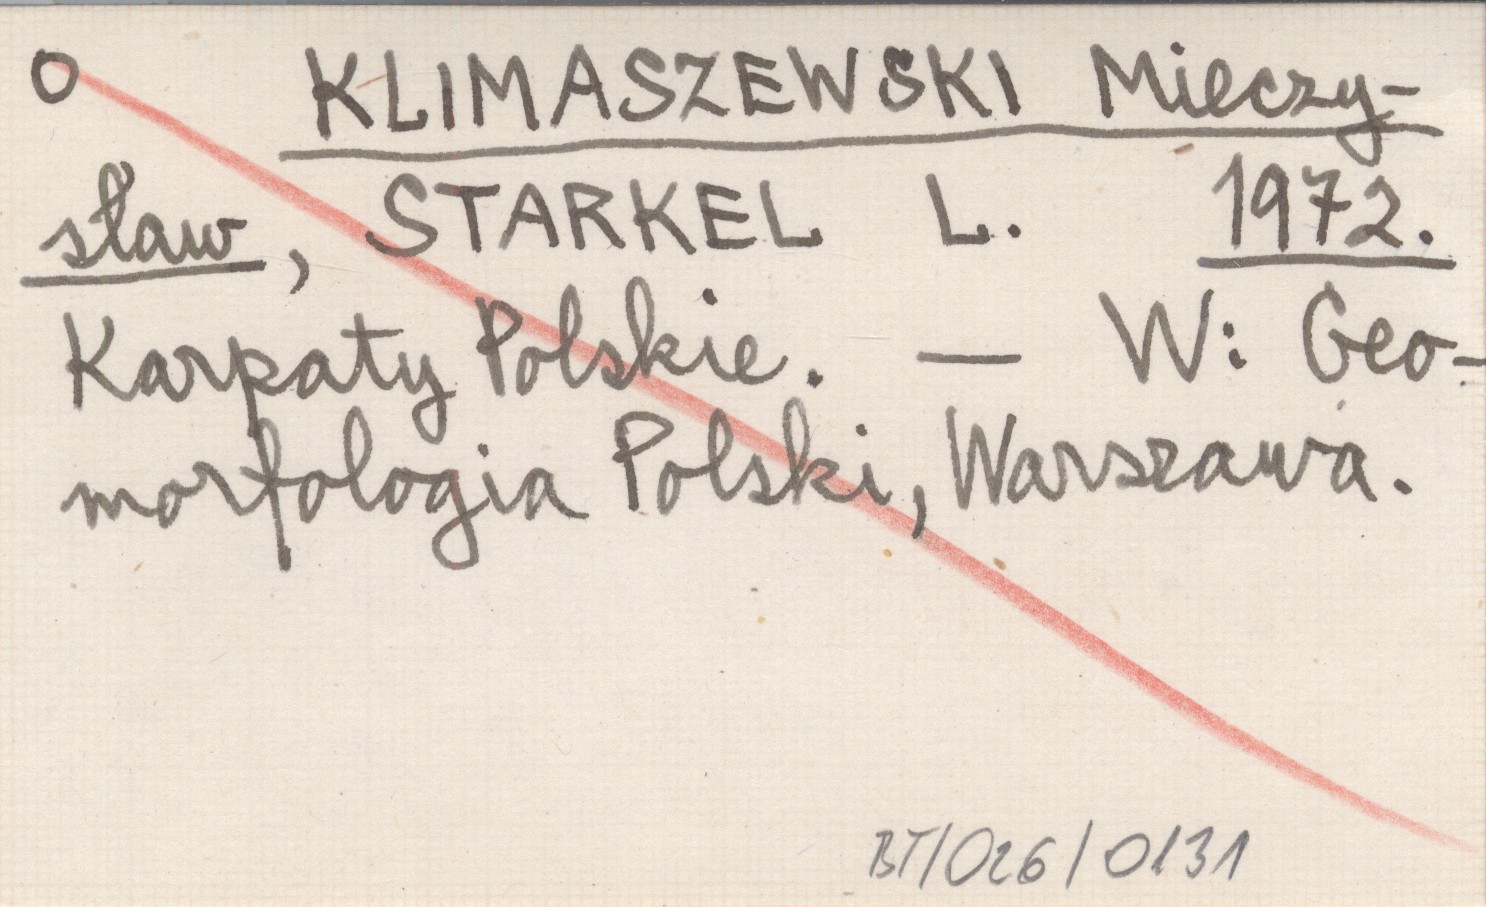 O KLIMASZEWSKI Mieczy-
sław, STARKEL L. 1972.
Karpaty Polskie. — W: Geo-
morfologia Polski, Warszawa.
BT/026/0131